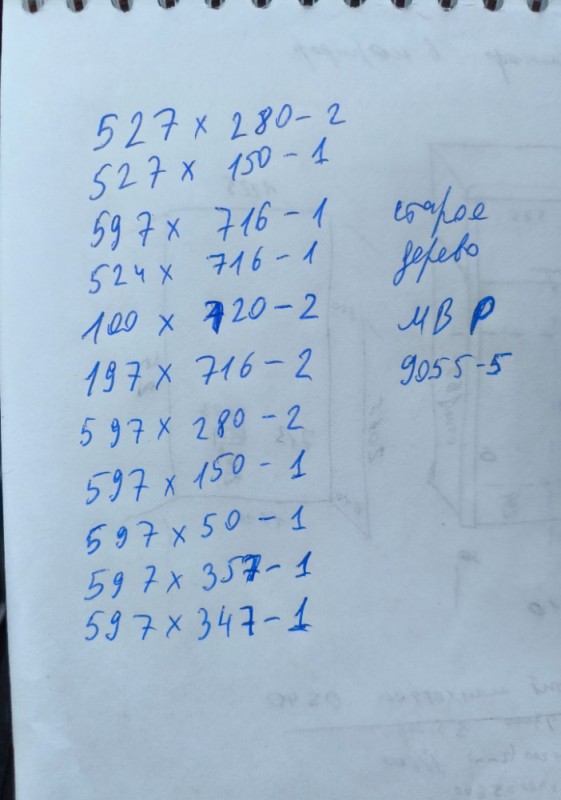 527 x 280 - 2
527 x 150 - 1
597 x 716 - 1
524 x 716 - 1
100 x 720 - 2
197 x 716 - 2
597 x 280 - 2
597 x 150 - 1
597 x 50 - 1
597 x 357 - 1
597 x 347 - 1
старое
дерево
МВ Р
9055-5